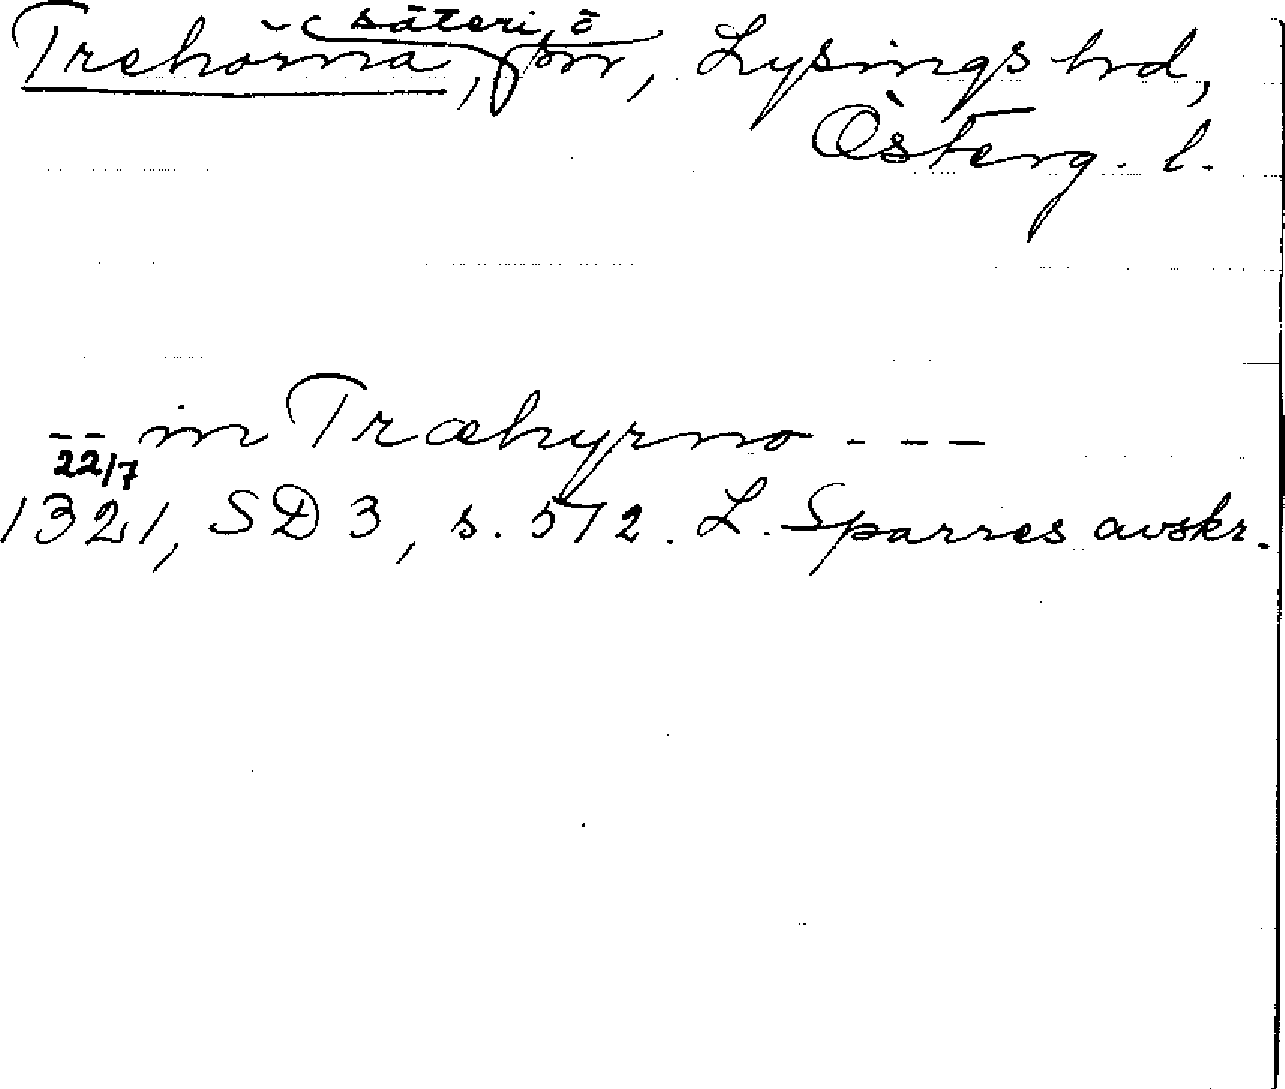 säteri,
Trehörna, sn, Lysings hd,
Österg. l.
-- in Træhyrno ---
22/7
1321, SD 3, s. 512. L. Sparres avskr.